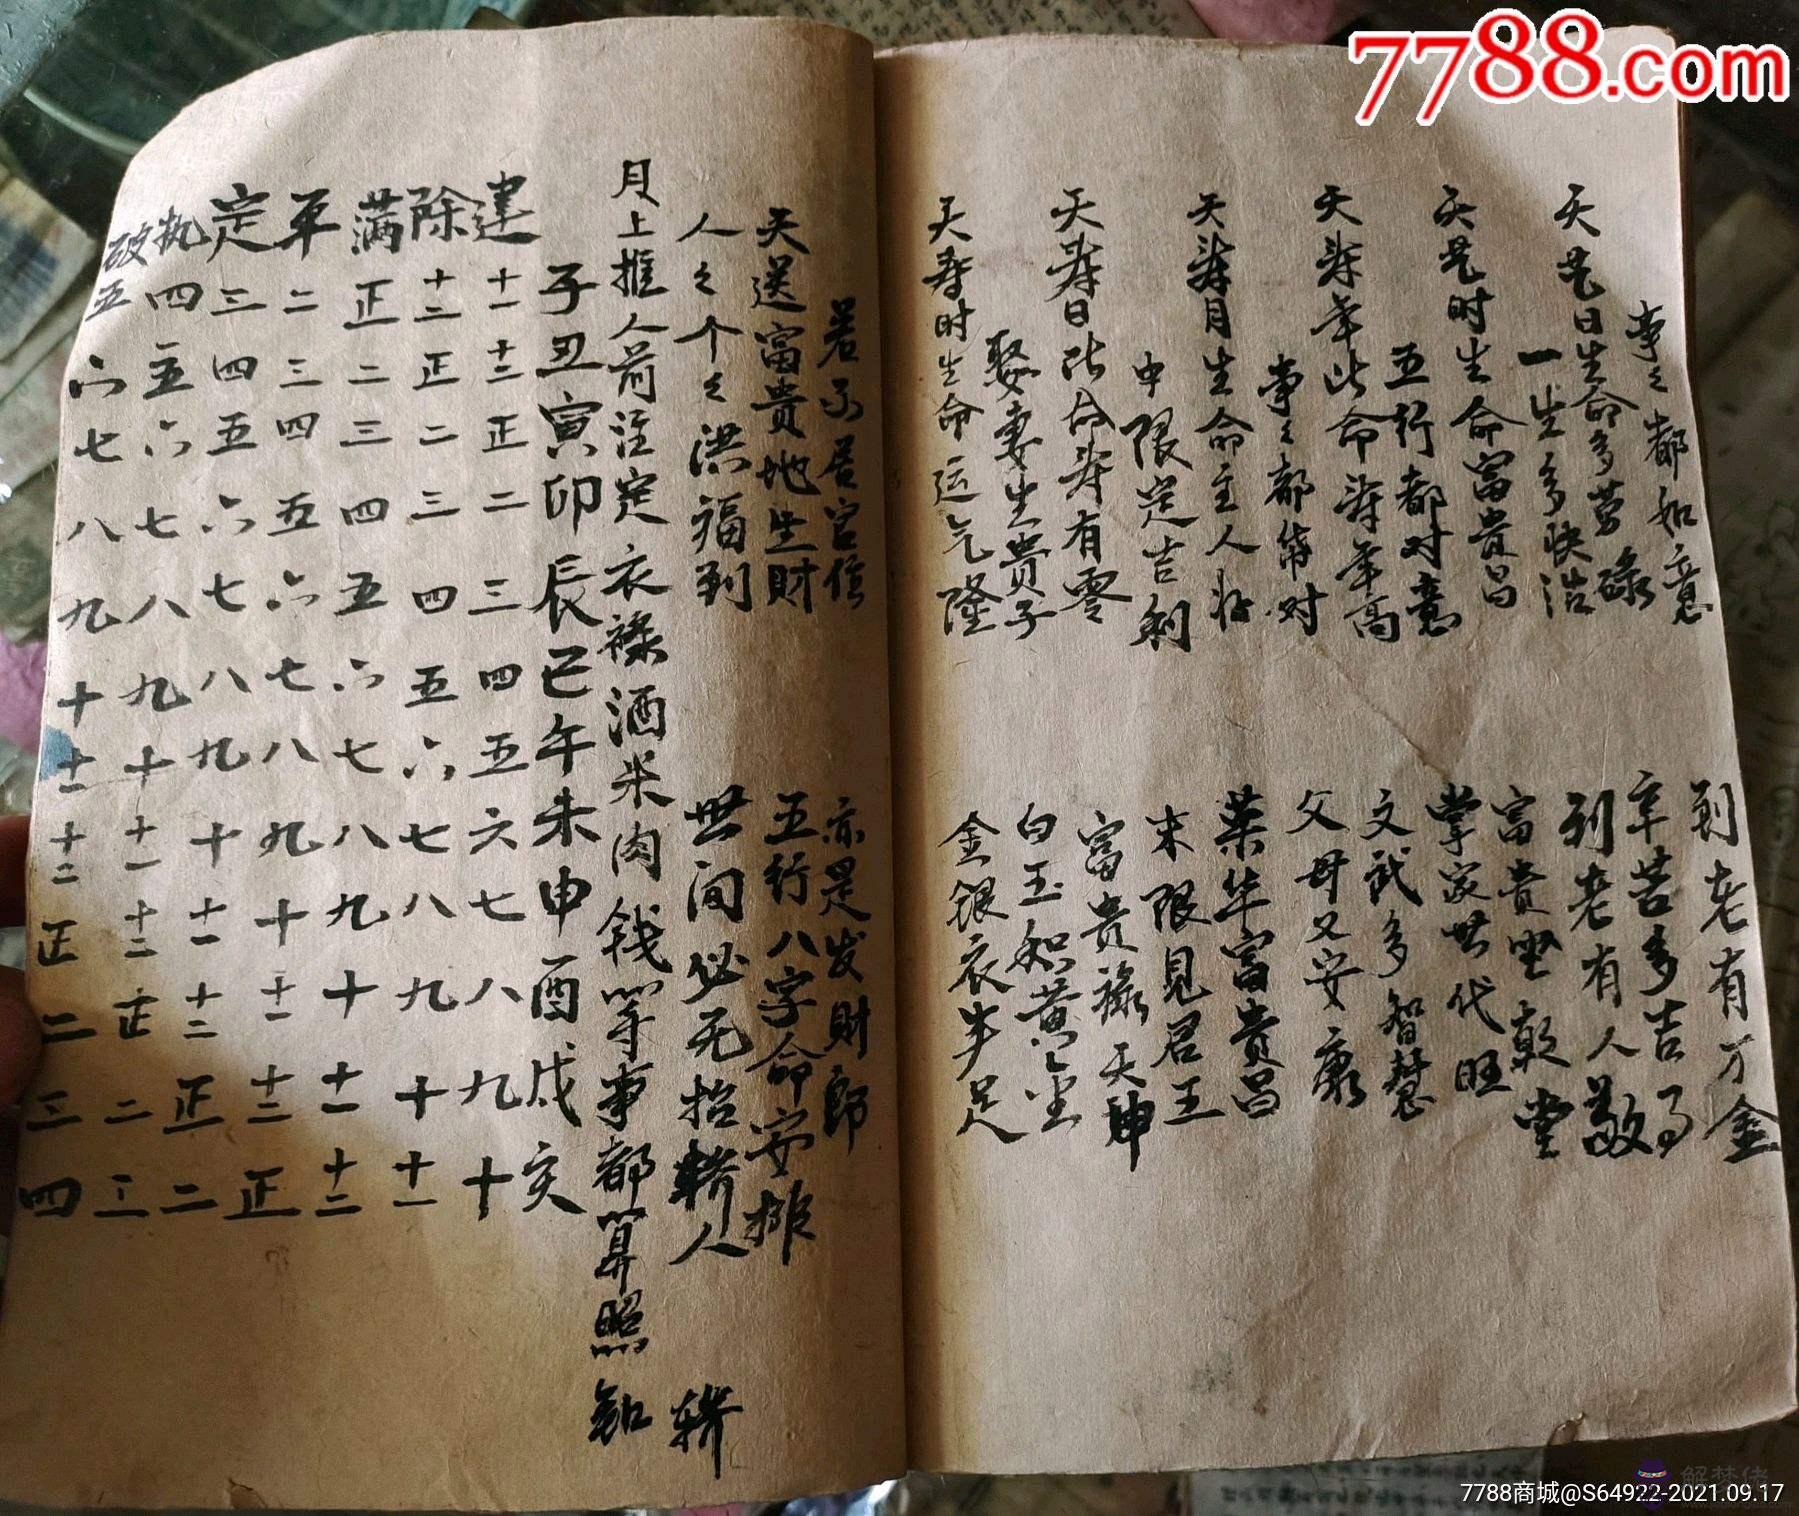 7788.com
事々都如意
到老有万金
天芪日生命多劳碌
辛苦多吉
一生多快活
到老有人敬
天芪时生命富贵昌
富贵坐乾堂
五行都对意
掌家世代旺
天寿年此命寿年高
文武多智慧
事々都带对
父母又安康
天寿月生命主人
荣华富贵昌
中限定吉利
末限见君王
天寿日此命寿有零
富贵 天神
娶妻生贵子
白玉和黄金
天寿时生命运气隆
金银衣丰足
若不居官位
亦是发财郎
天送富贵地生财
五行八字命安排
人々个々洪福到
世间必无抬轿人 轿
月上推人前注定衣禄酒米肉钱等事都算照知
子丑寅卯辰巳午未申酉戌亥
建十一十二正二三四五六七八九十
除十二正二三四五六七八九十十一
满正二三四五六七八九十十一十二
平二三四五六七八九十十一十二正
定三四五六七八九十十一十二正二
执四五六七八九十十一十二正二三
破五六七八九十十一十二正二三四
解梦佬
7788商城@S64922-2021.09.17